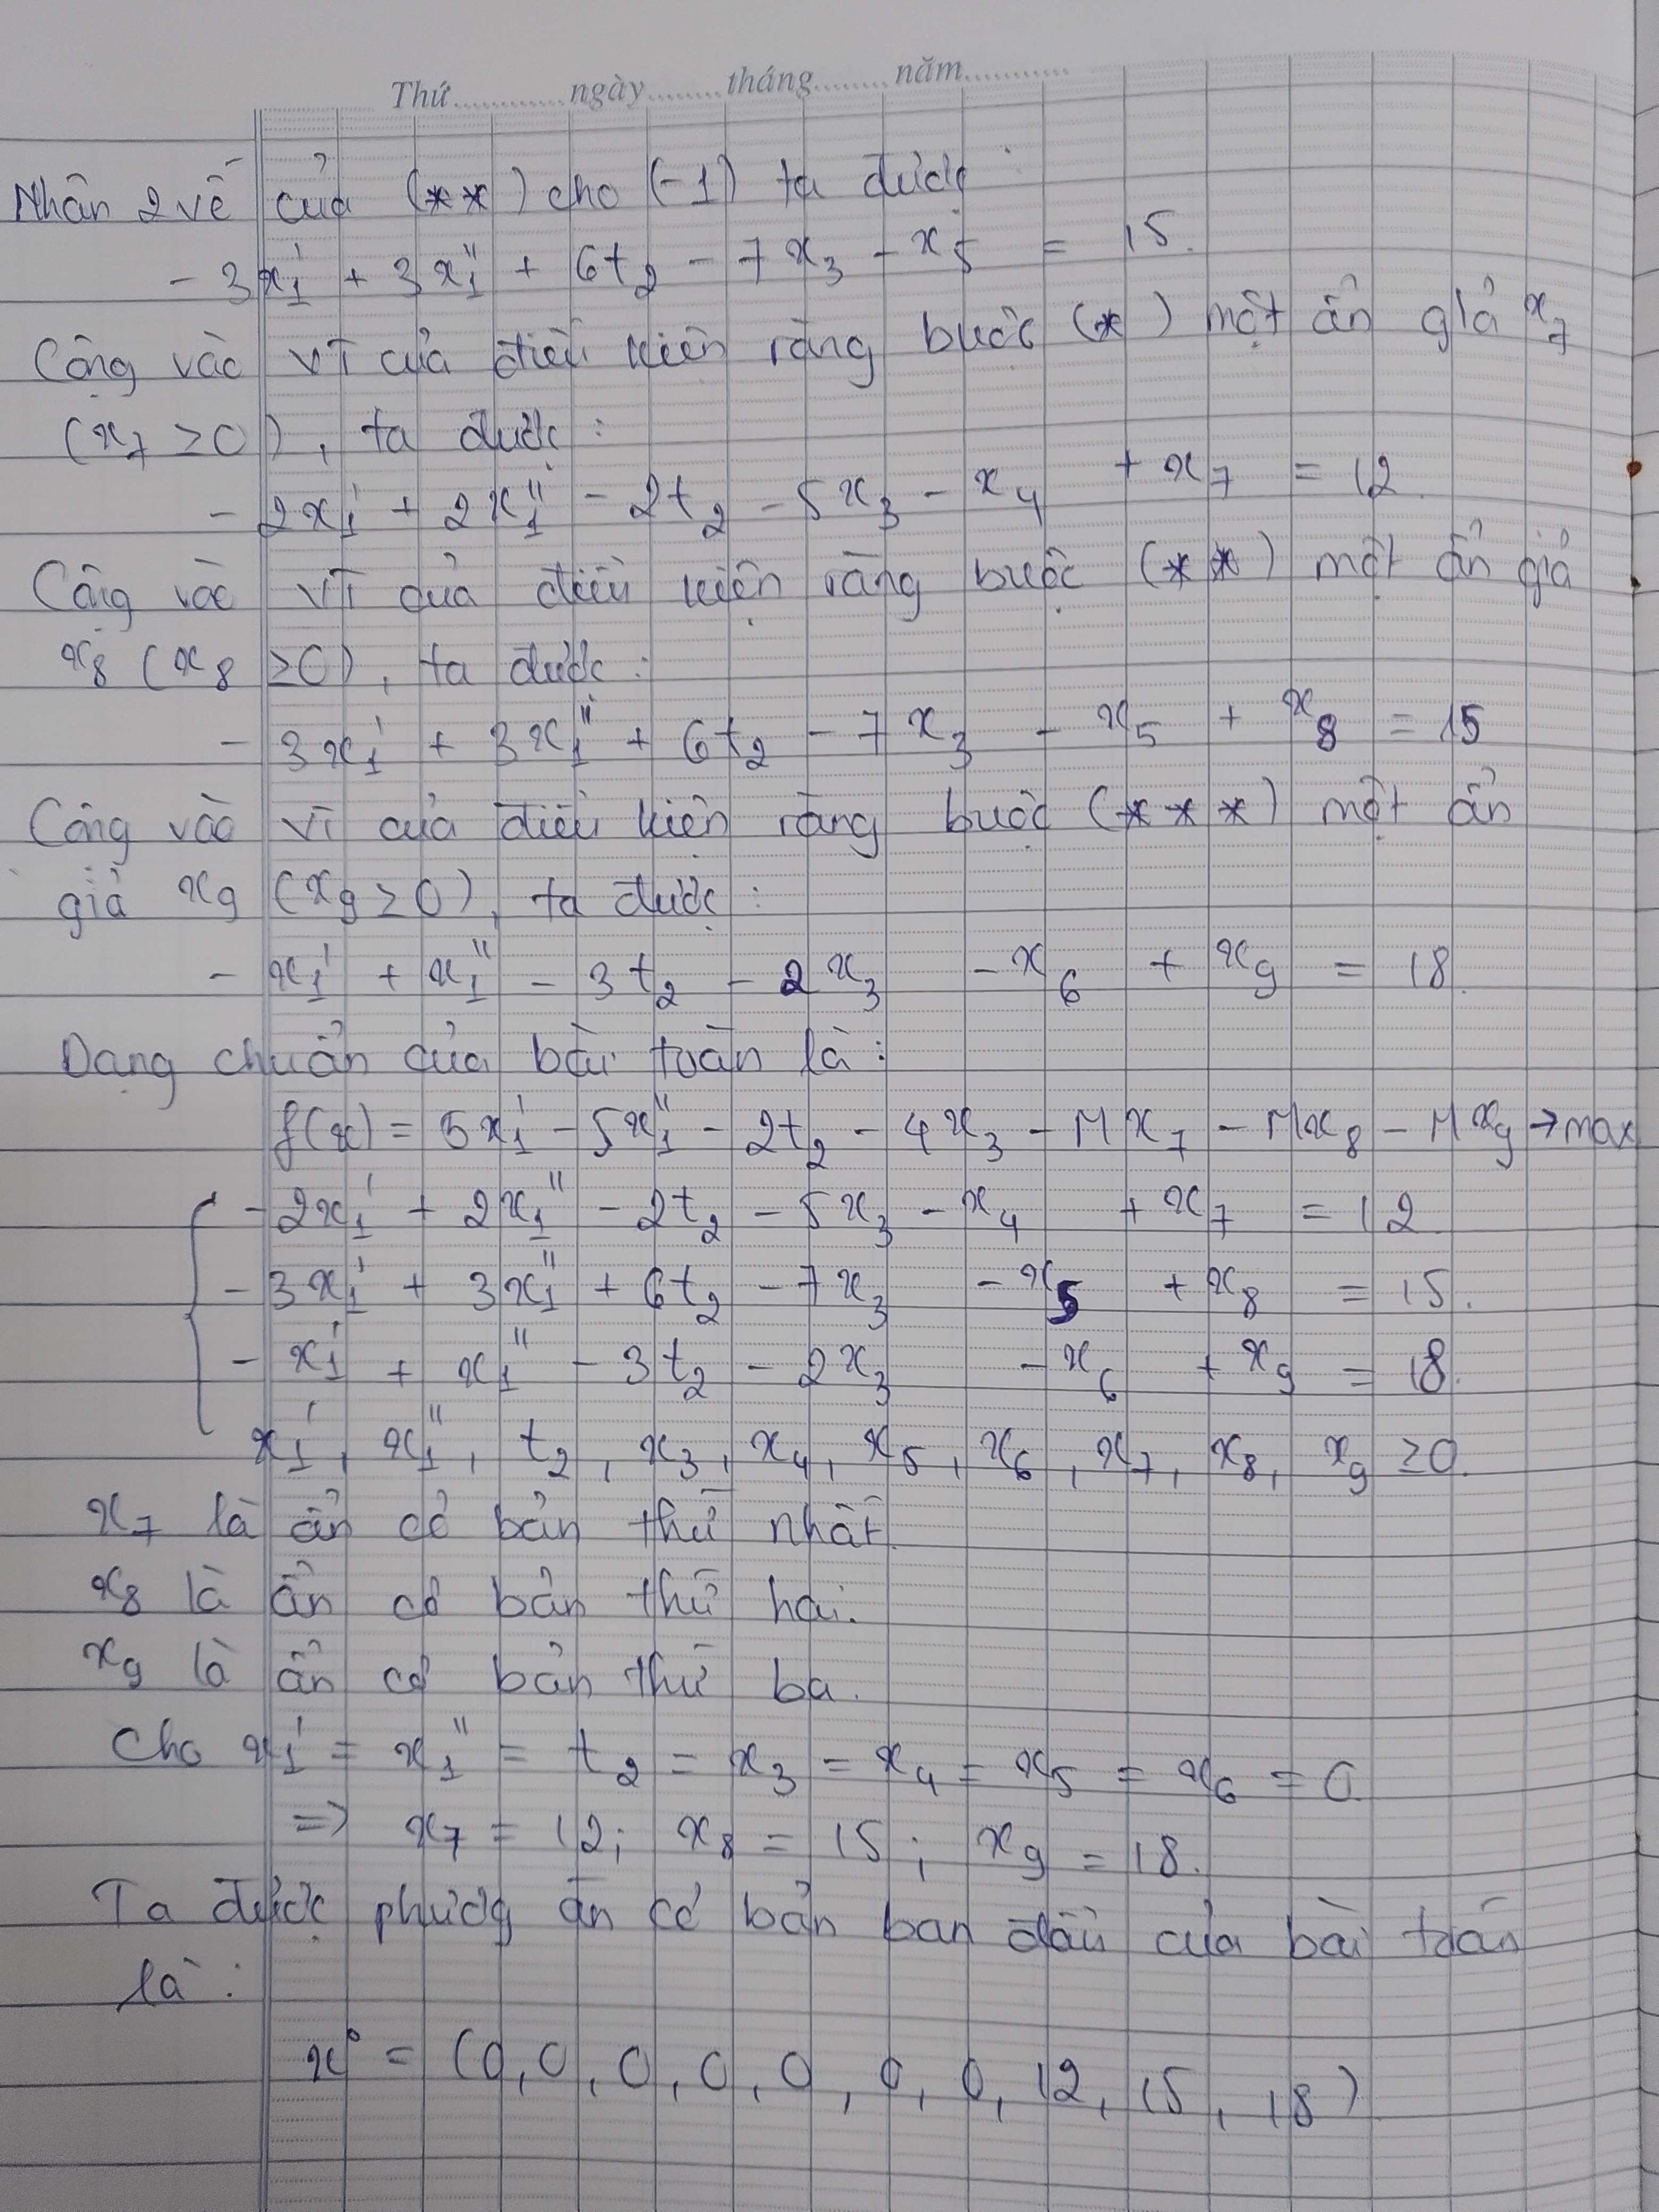 Thứ............ngày........tháng........năm...........
Nhân 2 vế của (**) cho (-1) ta được:
- 3x₁' + 3x₁'' + 6t₂ - 7x₃ - x₅ = 15.
Cộng vào VT của điều kiện ràng buộc (*) một ẩn giả x₇
(x₇ ≥ 0), ta được:
- 2x₁' + 2x₁'' - 2t₂ - 5x₃ - x₄ + x₇ = 12.
Cộng vào VT của điều kiện ràng buộc (**) một ẩn giả
x₈ (x₈ ≥ 0), ta được:
- 3x₁' + 3x₁'' + 6t₂ - 7x₃ - x₅ + x₈ = 15
Cộng vào VT của điều kiện ràng buộc (***) một ẩn
giả x₉ (x₉ ≥ 0), ta được:
- x₁' + x₁'' - 3t₂ - 2x₃ - x₆ + x₉ = 18.
Dạng chuẩn của bài toán là:
f(x) = 5x₁' - 5x₁'' - 2t₂ - 4x₃ - Mx₇ - Mx₈ - Mx₉ → max
- 2x₁' + 2x₁'' - 2t₂ - 5x₃ - x₄ + x₇ = 12
- 3x₁' + 3x₁'' + 6t₂ - 7x₃ - x₅ + x₈ = 15.
- x₁' + x₁'' - 3t₂ - 2x₃ - x₆ + x₉ = 18.
x₁', x₁'', t₂, x₃, x₄, x₅, x₆, x₇, x₈, x₉ ≥ 0.
x₇ là ẩn cơ bản thứ nhất.
x₈ là ẩn cơ bản thứ hai.
x₉ là ẩn cơ bản thứ ba.
Cho x₁' = x₁'' = t₂ = x₃ = x₄ = x₅ = x₆ = 0.
=> x₇ = 12; x₈ = 15; x₉ = 18.
Ta được phương án cơ bản ban đầu của bài toán
là:
x⁰ = (0, 0, 0, 0, 0, 0, 0, 12, 15, 18)